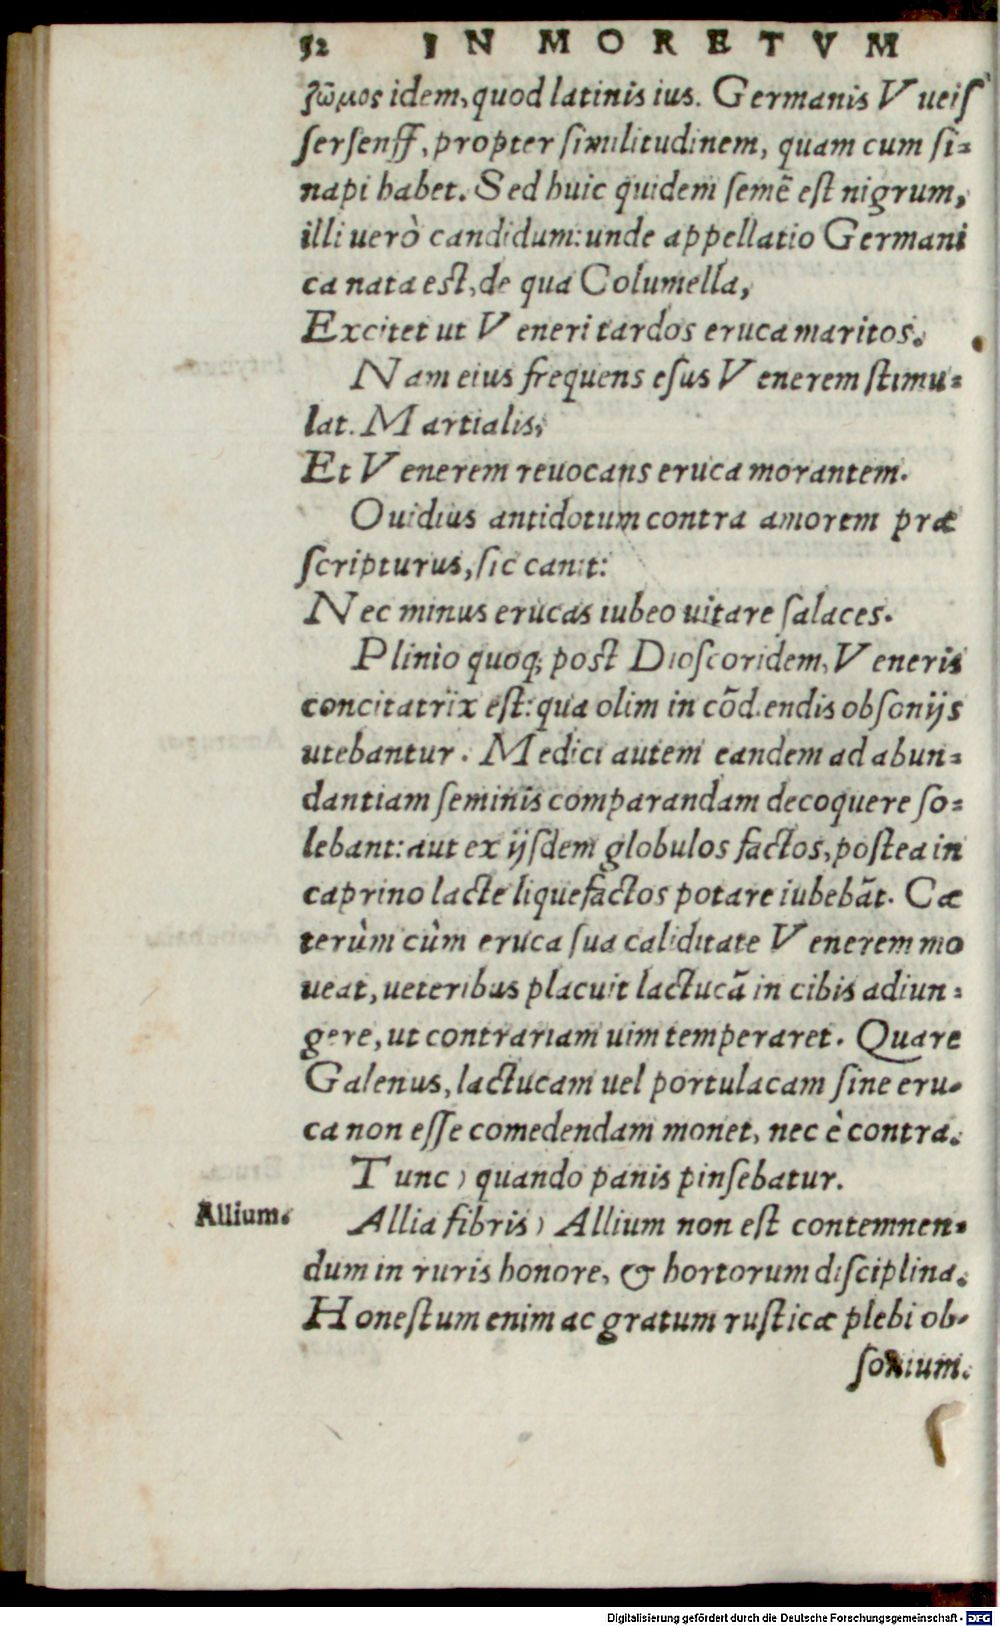 52 IN MORETVM
ζῶμος idem, quod latinis ius. Germanis Vueiſ
ſerſenff, propter ſimilitudinem, quam cum ſi-
napi habet. Sed huic quidem ſemē eſt nigrum,
illi uerò candidum: unde appellatio Germani
ca nata eſt, de qua Columella,
Excitet ut Veneri tardos eruca maritos.
Nam eius frequens eſus Venerem ſtimu-
lat. Martialis,
Et Venerem reuocans eruca morantem.
Ouidius antidotum contra amorem præ
ſcripturus, ſic canit:
Nec minus erucas iubeo uitare ſalaces.
Plinio quoq; poſt Dioſcoridem, Veneris
concitatriix eſt: qua olim in cōdiendis obſonijs
utebantur. Medici autem eandem ad abun-
dantiam ſeminis comparandam decoquere ſo-
lebant: aut ex ijſdem globulos factos, poſtea in
caprino lacte liquefactos potare iubebāt. Cæ
terùm cùm eruca ſua caliditate Venerem mo
ueat, ueteribus placuit lactucā in cibis adiun-
gere, ut contrariam uim temperaret. Quare
Galenus, lactucam uel portulacam ſine eru-
ca non eſſe comedendam monet, nec è contra.
Tunc) quando panis pinſebatur.
Allium.
Allia fibris) Allium non eſt contemnen-
dum in ruris honore, & hortorum diſciplina.
Honeſtum enim ac gratum ruſticæ plebi ob-
ſonium.
Digitalisierung gefördert durch die Deutsche Forschungsgemeinschaft - DFG